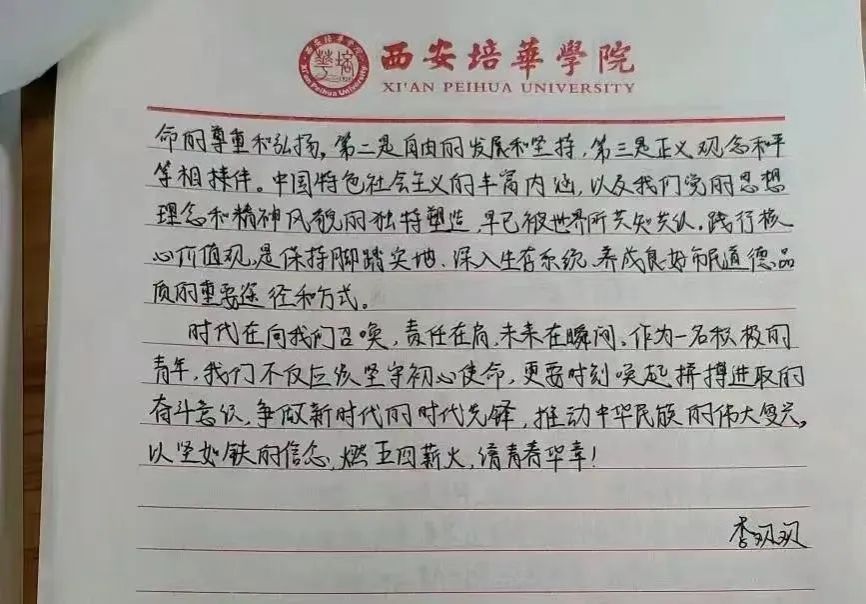 西安培華學院
XI'AN PEIHUA UNIVERSITY
命的尊重和弘扬,第二是自由的发展和坚持,第三是正义观念和平
等相操伴。中国特色社会主义的丰富内涵,以及我们党的思想
理念和精神风貌的独特塑造,早已被世界所共知共认。践行核
心价值观,是保持脚踏实地、深入生存系统、养成良好市民道德品
质的重要途径和方式。
时代在向我们召唤,责任在肩、未来在瞬间。作为一名积极的
青年,我们不仅应该坚守初心使命,更要时刻唤起拼搏进取的
奋斗意识,争做新时代的时代先锋,推动中华民族的伟大复兴,
以坚如铁的信念,燃五四薪火,绩青春华章!
李